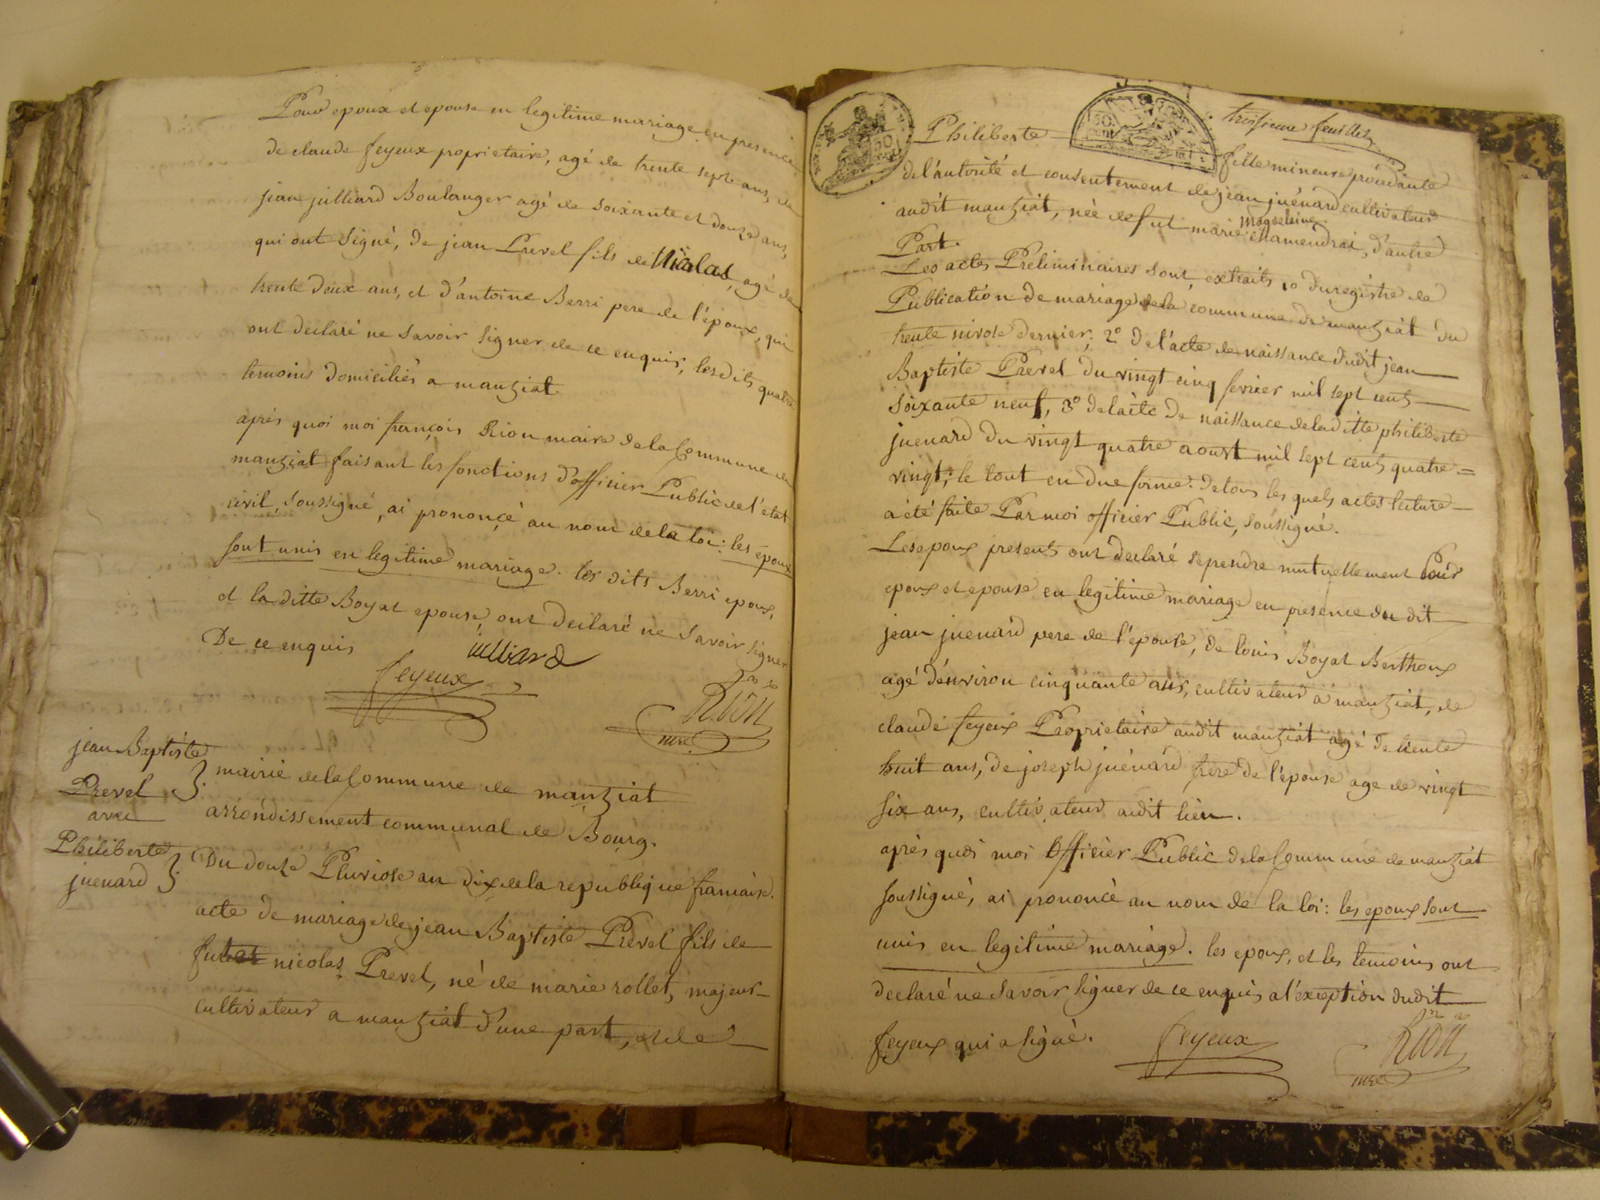 Pour epoux et epouse en legitime mariage en presence
de claude feyeux proprietaire, agé de trente sept ans, de
jean juilliard Boulanger agé de soixante et douze ans,
qui ont signé, de jean Prevel fils de Nicolas, agé de
trente deux ans, et d'antoine Berri pere de l'époux, qui
ont declaré ne savoir signer de ce enquis, les dits quatre
temoins domiciliés a manziat
après quoi moi françois Rion maire de la Commune de
manziat faisant les fonctions d'officier Public de l'état
civil, soussigné, ai prononcé au nom de la loi: les epoux
sont unis en legitime mariage. les dits Berri epoux,
et la ditte Boyat epouse, ont declaré ne savoir signer
De ce enquis
juilliard
feyeux
Rion
mre
jean Baptiste
Prevel
avec
Philiberte
juenard
mairie de la Commune de manziat
arrondissement communal de Bourg.
Du douze Pluviose an dix de la republique francaise.
acte de mariage de jean Baptiste Prevel fils de
fut nicolas Prevel, né de marie rollet, majeur
cultivateur a manziat d'une part, et de
50
50
troisieme feuillet
Philiberte fille mineure procedante
de l'autorité et consentement de jean juénard cultivateur
audit manziat, née de fut marie magdelaine Chamendrai, d'autre
Part.
Les actes Préliminaires sont, extraits 1o du registre de
Publication de mariage de la commune de manziat du
trente nivose dernier, 2o de l'acte de naissance dudit jean
Baptiste Prevel du vingt cinq fevrier mil sept cents
soixante neuf, 3o de l'acte de naissance de laditte philiberte
juenard du vingt quatre aoust mil sept cents quatre=
vingt; le tout en due forme. de tous les quels actes lecture
a été faite Par moi officier Public, soussigné.
Les epoux presents ont declaré se prendre mutuellement Pour
epoux et epouse en legitime mariage en presence du dit
jean juenard pere de l'épouse, de louis Boyat Berthoux
agé d'énviron cinquante ans, cultivateur a manziat, de
claude feyeux Proprietaire audit manziat agé de trente
huit ans, de joseph juénard frere de l'épouse age de vingt
six ans, cultivateur audit lieu.
après quoi moi Officier Public de la Commune de manziat
soussigné, ai prononcé au nom de la loi: les epoux sont
unis en legitime mariage. les epoux, et les temoins ont
declaré ne savoir signer de ce enquis a l'exception dudit
feyeux qui a signé.
feyeux
Rion
mre